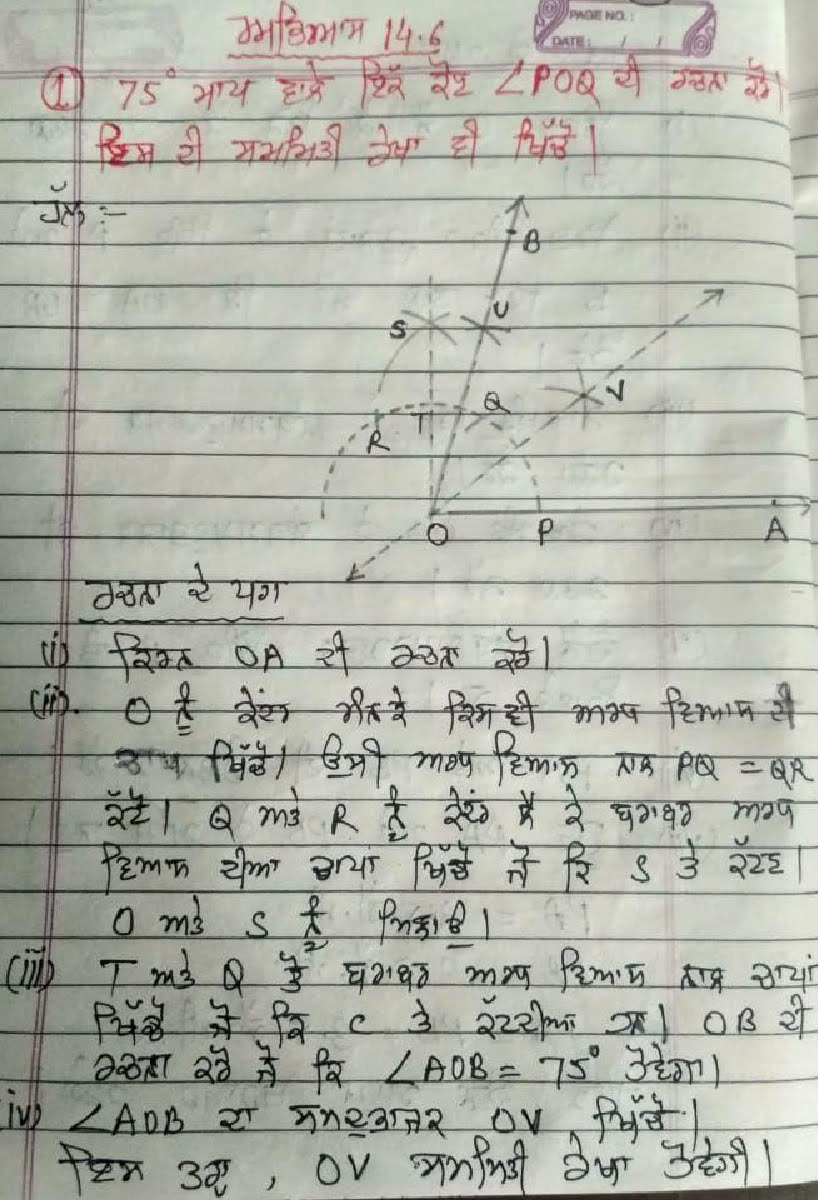 ਅਭਿਆਸ 14.6
PAGE NO.:
DATE: / /
① 75° ਮਾਪ ਵਾਲੇ ਇੱਕ ਕੋਣ ∠POQ ਦੀ ਰਚਨਾ ਕਰੋ।
ਇਸ ਦੀ ਸਮਮਿਤੀ ਰੇਖਾ ਵੀ ਖਿੱਚੋ।
ਹੱਲ :-
B
S
U
V
Q
T
R
O P A
ਰਚਨਾ ਦੇ ਪਗ
(i) ਕਿਰਨ OA ਦੀ ਰਚਨਾ ਕਰੋ।
(ii). O ਨੂੰ ਕੇਂਦਰ ਮੰਨਕੇ ਕਿਸੇ ਵੀ ਅਰਧ ਵਿਆਸ ਦੀ
ਚਾਪ ਖਿੱਚੋ। ਉਸੀ ਅਰਧ ਵਿਆਸ ਨਾਲ PQ = QR
ਕੱਟੋ। Q ਅਤੇ R ਨੂੰ ਕੇਂਦਰ ਲੈ ਕੇ ਬਰਾਬਰ ਅਰਧ
ਵਿਆਸ ਦੀਆ ਚਾਪਾਂ ਖਿੱਚੋ ਜੋ ਕਿ S ਤੇ ਕੱਟਣ।
O ਅਤੇ S ਨੂੰ ਮਿਲਾਓ।
(iii) T ਅਤੇ Q ਤੋਂ ਬਰਾਬਰ ਅਰਧ ਵਿਆਸ ਨਾਲ ਚਾਪਾਂ
ਖਿੱਚੋ ਜੋ ਕਿ C ਤੇ ਕੱਟਦੀਆ ਹਨ। OB ਦੀ
ਰਚਨਾ ਕਰੋ ਜੋ ਕਿ ∠AOB = 75° ਹੋਵੇਗਾ।
iv) ∠AOB ਦਾ ਸਮਦੁਭਾਜਕ OV ਖਿੱਚੋ।
ਇਸ ਤਰ੍ਹਾਂ, OV ਸਮਮਿਤੀ ਰੇਖਾ ਹੋਵੇਗੀ।